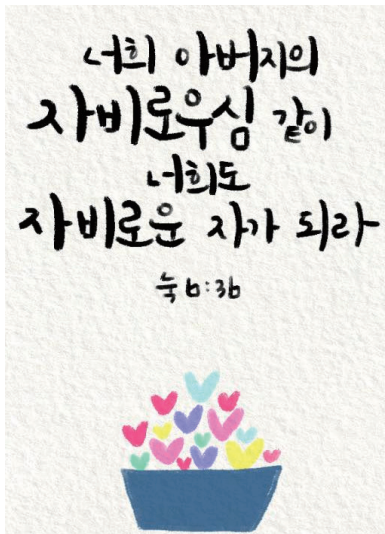 너희 아버지의
자비로우심 같이
너희도
자비로운 자가 되라
눅 6:36